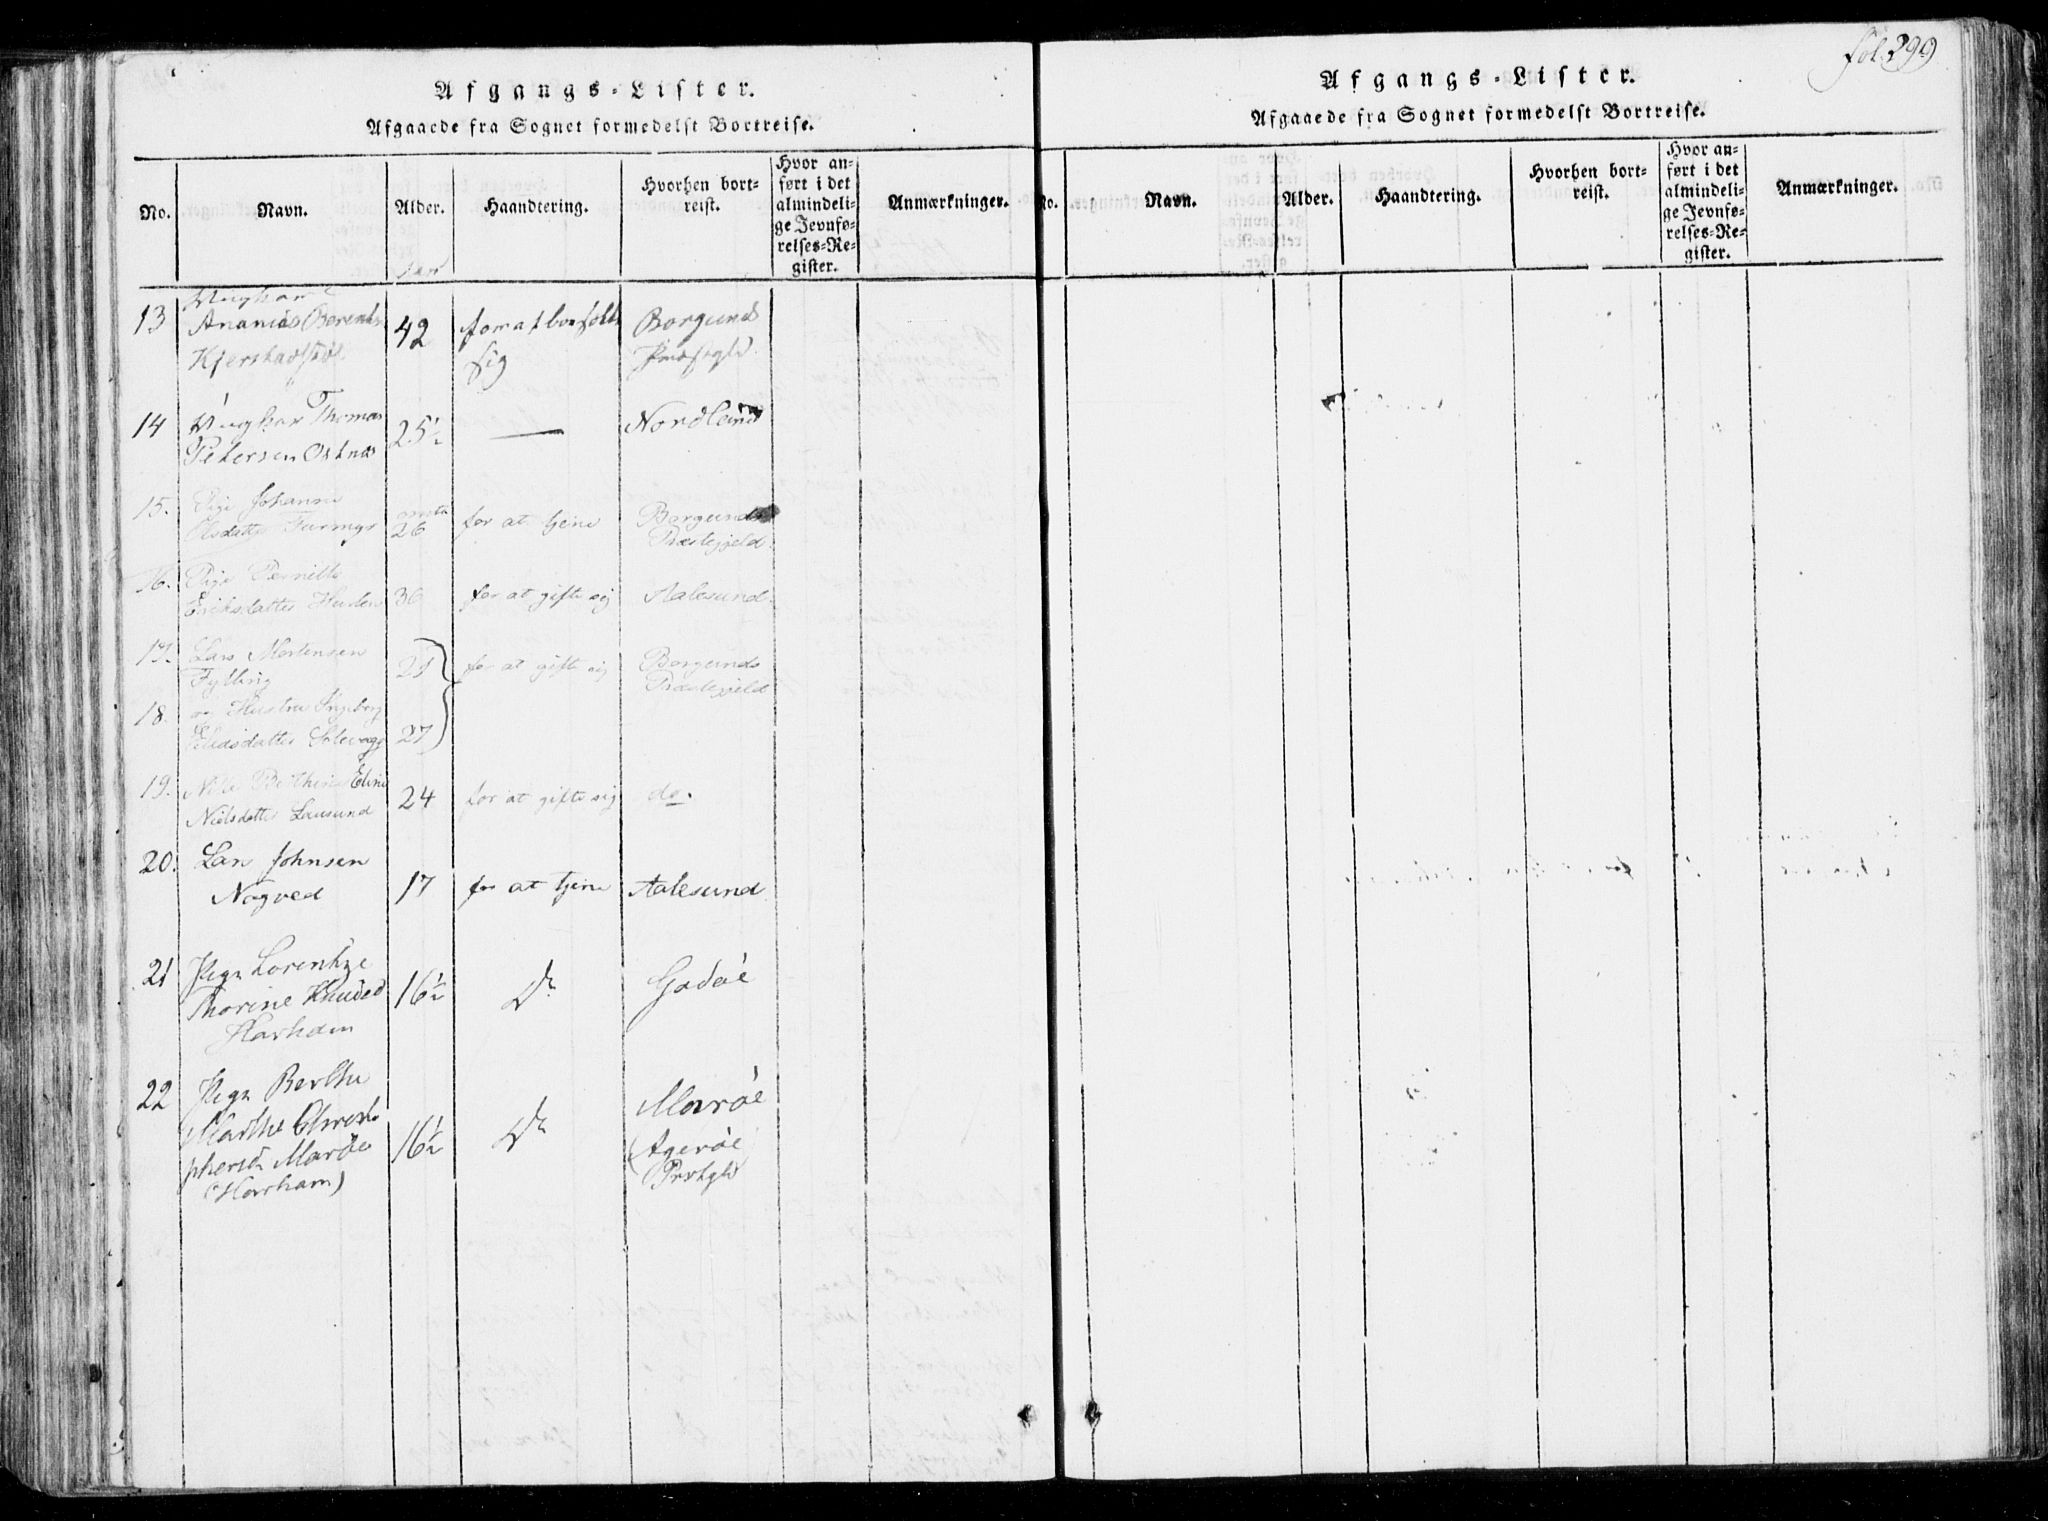 Afgangs-Lister.
Afgaaede fra Sognet formedelst Bortreise.
No.
Navn.
Alder.
Haandtering.
Hvorhen bort-
reist.
Hvor an-
ført i det
almindeli-
ge Jevnfø-
relses-Re-
gister.
Anmærkninger.
Aar
13
Ungkarl
Ananias Berents
Kjerstadstøl
42
for at bosætte
sig
Borgunds
Præstgld.
14
Ungkar Thomas
Petersen Ostnæs
25½
—
Nordland
15.
Pige Johanne
Olsdatter
omtr
26
for at tjene
Borgunds
Præstegjeld.
16.
Pige Pernille
Eriksdatter
36
for at gifte sig
Aalesund.
17.
Lars Mortensen
Fylling
for at gifte sig
Borgunds
Præstegjeld
18.
og Hustru Ingeborg
Solevaag
27
19.
Berthe Eline
Nielsdatter Lausund
24
for at gifte sig
do.
20.
Lars Johnsen
Nogved
17
for at tjene
Aalesund.
21
Pign Lorentze
Thorine Knudsd
Harham
16½
Do
Godøe
22
Pign Berthe
Marthe Christo
phersd Marøe
(Harham)
16½
Do
Marøe
(Agerøe
Prstgld
fol. 299
Afgangs-Lister.
Afgaaede fra Sognet formedelst Bortreise.
No.
Navn.
Alder.
Haandtering.
Hvorhen bort-
reist.
Hvor an-
ført i det
almindeli-
ge Jevnfø-
relses-Re-
gister.
Anmærkninger.